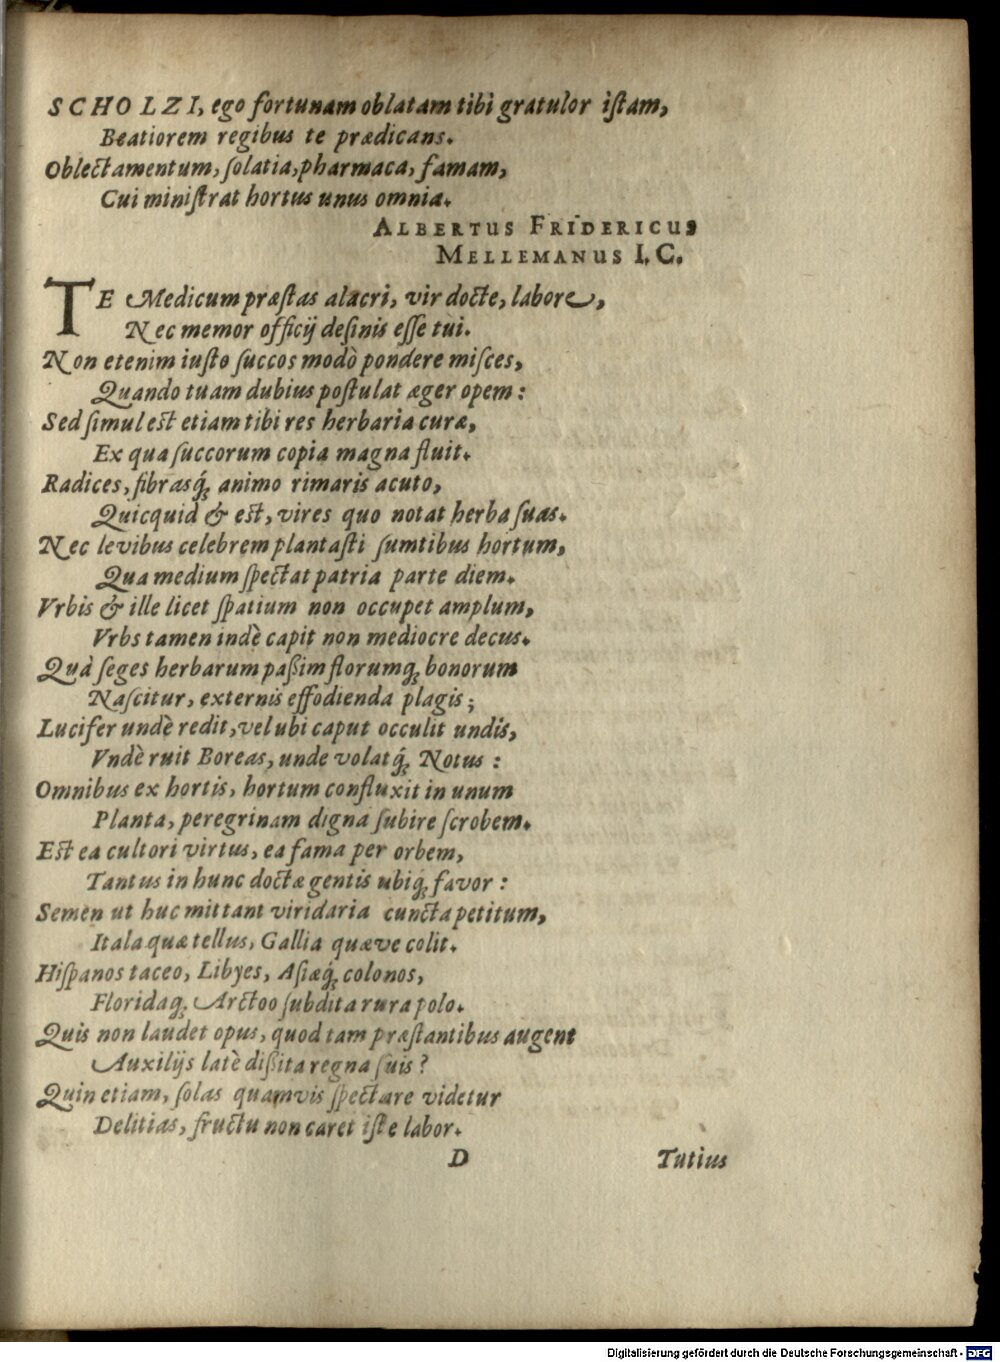 SCHOLZI, ego fortunam oblatam tibi gratulor iſtam,
Beatiorem regibus te prædicans.
Oblectamentum, ſolatia, pharmaca, famam,
Cui miniſtrat hortus unus omnia.
ALBERTUS FRIDERICUS
MELLEMANUS I. C.
TE Medicum præſtas alacri, vir docte, labore,
Nec memor officij deſinis eſſe tui.
Non etenim iuſto ſuccos modò pondere miſces,
Quando tuam dubius poſtulat æger opem:
Sed ſimul est etiam tibi res herbaria curæ,
Ex qua ſuccorum copia magna fluit.
Radices, fibrasq́; animo rimaris acuto,
Quicquid & est, vires quo notat herba ſuas.
Nec levibus celebrem plantaſti ſumtibus hortum,
Qua medium ſpectat patria parte diem.
Vrbis & ille licet ſpatium non occupet amplum,
Vrbs tamen indè capit non mediocre decus.
Quà ſeges herbarum paßim florumq; bonorum
Naſcitur, externis effodienda plagis;
Lucifer undè redit, vel ubi caput occulit undis,
Vndè ruit Boreas, unde volatq́; Notus:
Omnibus ex hortis, hortum confluxit in unum
Planta, peregrinam digna ſubire ſcrobem.
Est ea cultori virtus, ea fama per orbem,
Tantus in hunc doctæ gentis ubiq́; favor:
Semen ut huc mittant viridaria cuncta petitum,
Itala quæ tellus, Gallia quæve colit.
Hiſpanos taceo, Libyes, Aſiæq́; colonos,
Floridaq; Arctoo ſubdita rura polo.
Quis non laudet opus, quod tam præſtantibus augent
Auxilijs latè dißita regna ſuis?
Quin etiam, ſolas quamvis ſpectare videtur
Delitias, fructu non caret iſte labor.
D Tutius
Digitalisierung gefördert durch die Deutsche Forschungsgemeinschaft - DFG